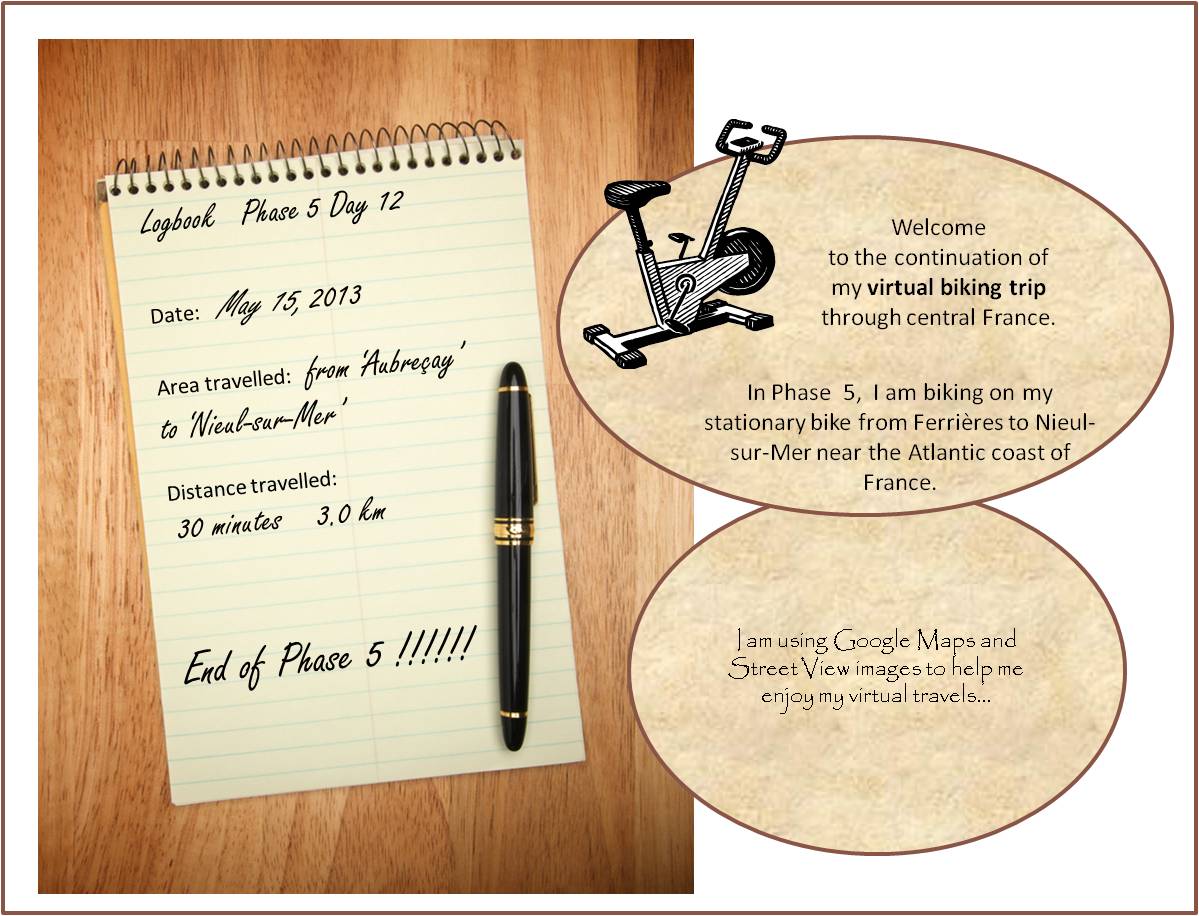 Logbook Phase 5 Day 12
Date: May 15, 2013
Area travelled: from 'Aubreçay'
to 'Nieul-sur-Mer'
Distance travelled:
30 minutes 3.0 km
End of Phase 5 !!!!!!
Welcome
to the continuation of
my virtual biking trip
through central France.
In Phase 5, I am biking on my
stationary bike from Ferrières to Nieul-
sur-Mer near the Atlantic coast of
France.
I am using Google Maps and
Street View images to help me
enjoy my virtual travels...